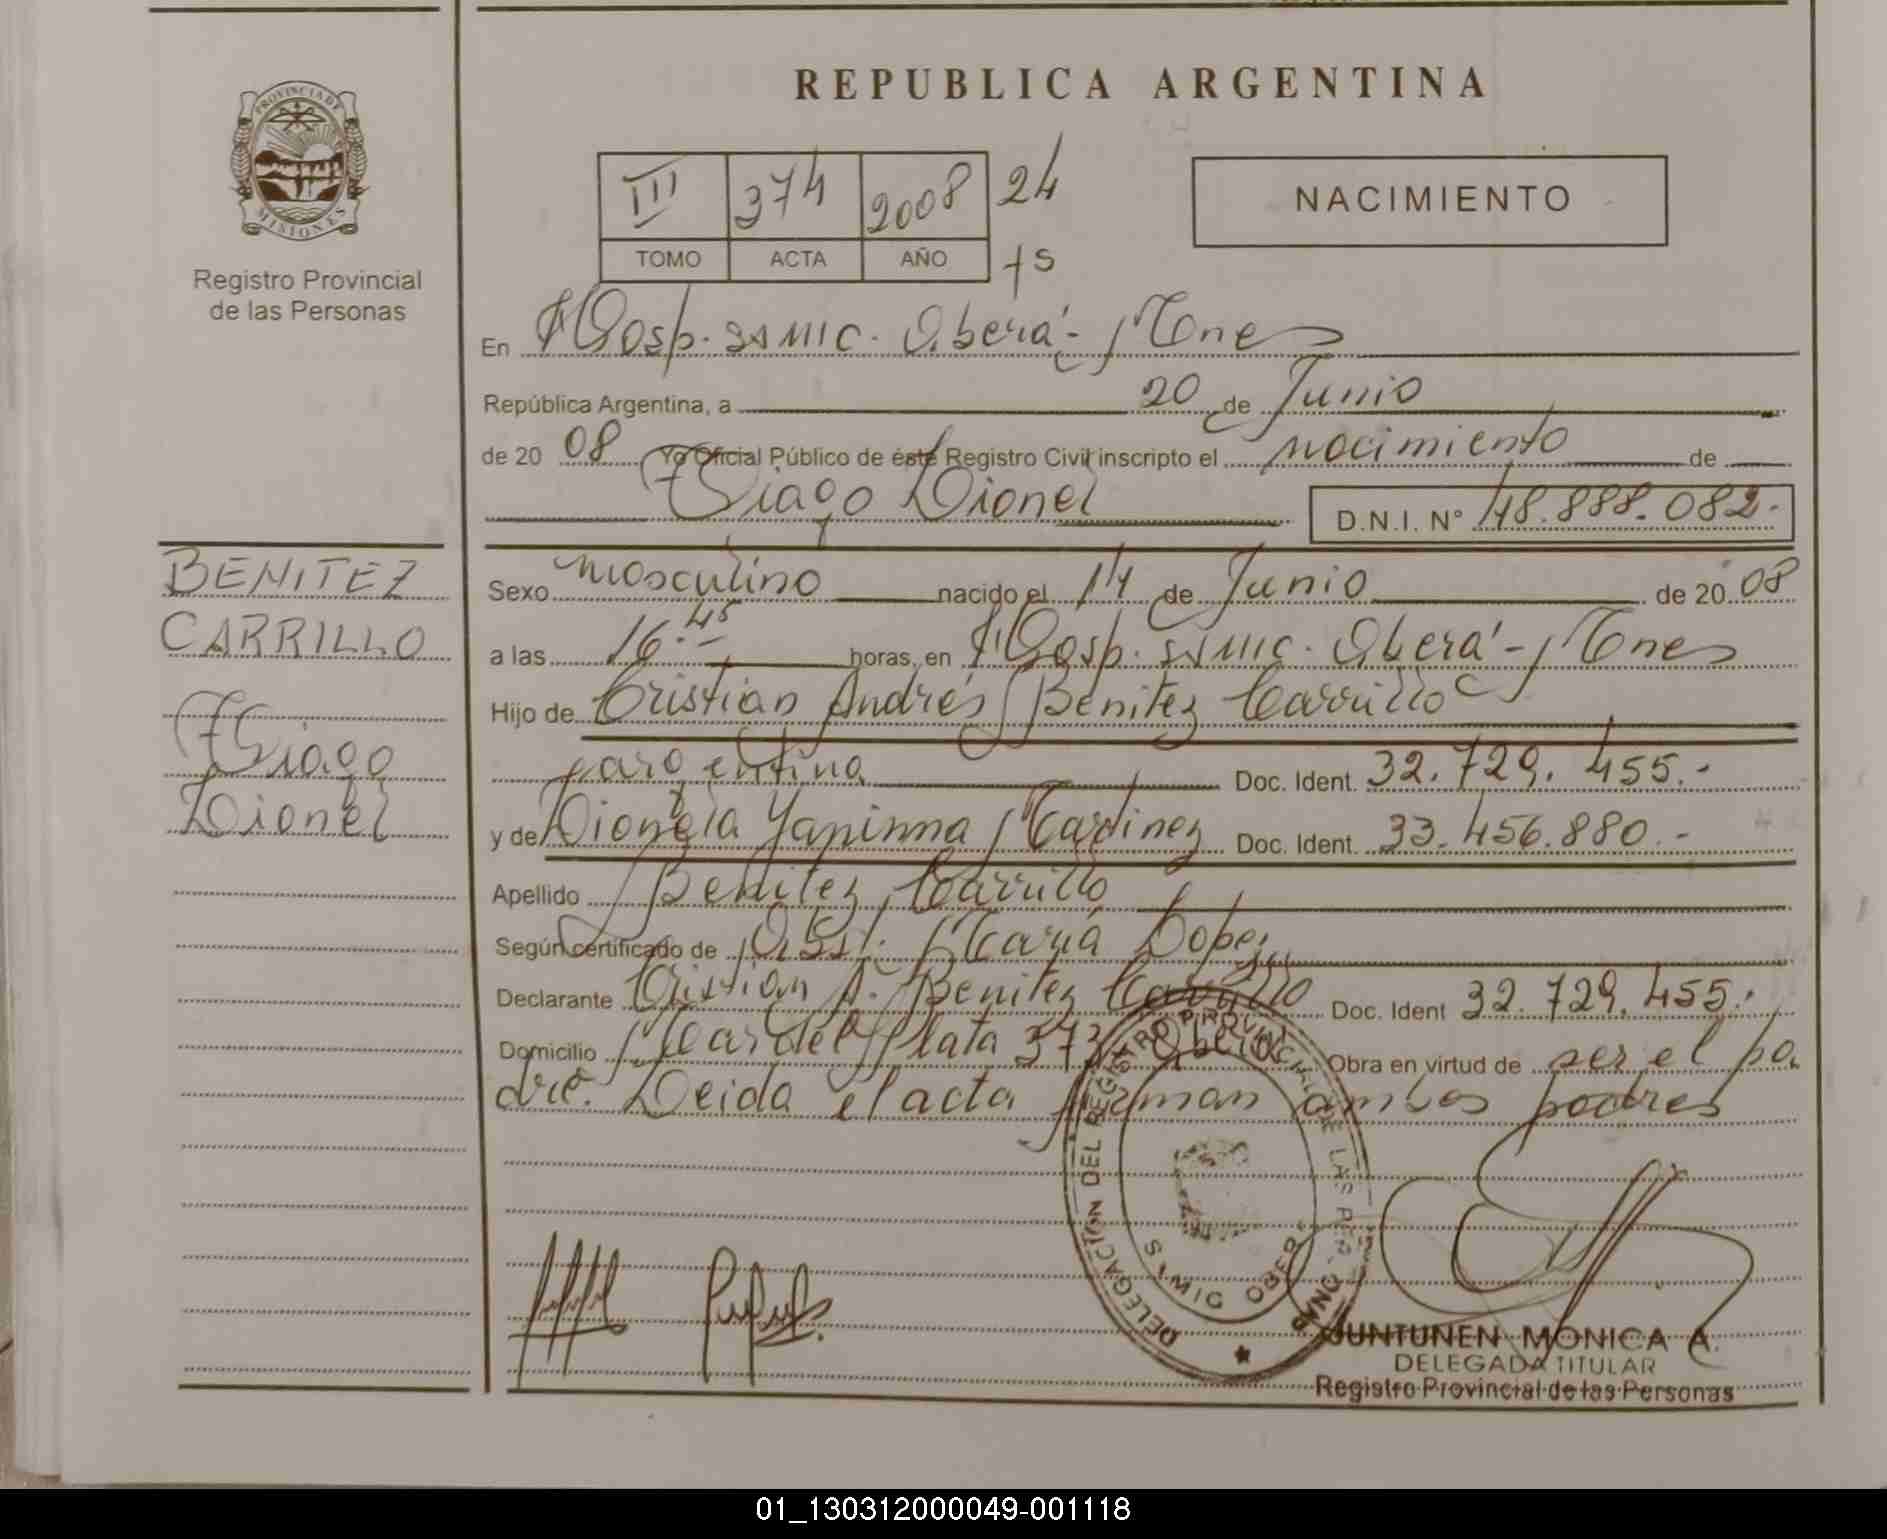 REPUBLICA ARGENTINA
PROVINCIA DE
MISIONES
Registro Provincial
de las Personas
III 374 2008 24
TOMO ACTA AÑO fs
NACIMIENTO
En Hosp. SSMIC. Oberá - Mnes
República Argentina, a 20 de Junio
de 20 08 Yo Oficial Público de éste Registro Civil inscripto el nacimiento de
Thiago Lionel D.N.I. N° 48.888.082.
BENITEZ
CARRILLO
Thiago
Lionel
Sexo masculino nacido el 14 de Junio de 20 08
a las 16.45 horas, en Hosp. SSMIC. Oberá - Mnes
Hijo de Cristian Andrés Benitez Carrillo
argentina Doc. Ident. 32.729.455.-
y de Lionela Yaninna Martinez Doc. Ident. 33.456.880.-
Apellido Benitez Carrillo
Según certificado de Obst. María Lopez
Declarante Cristian A. Benitez Carrillo Doc. Ident 32.729.455.-
Domicilio Mar del Plata 373 Oberá Obra en virtud de ser el pa
dre. Leida el acta firman ambos padres
DELEGACIÓN DEL REGISTRO PROVINCIAL DE LAS PERSONAS
JUNTUNEN MONICA A.
DELEGADA TITULAR
Registro Provincial de las Personas
01_130312000049-001118